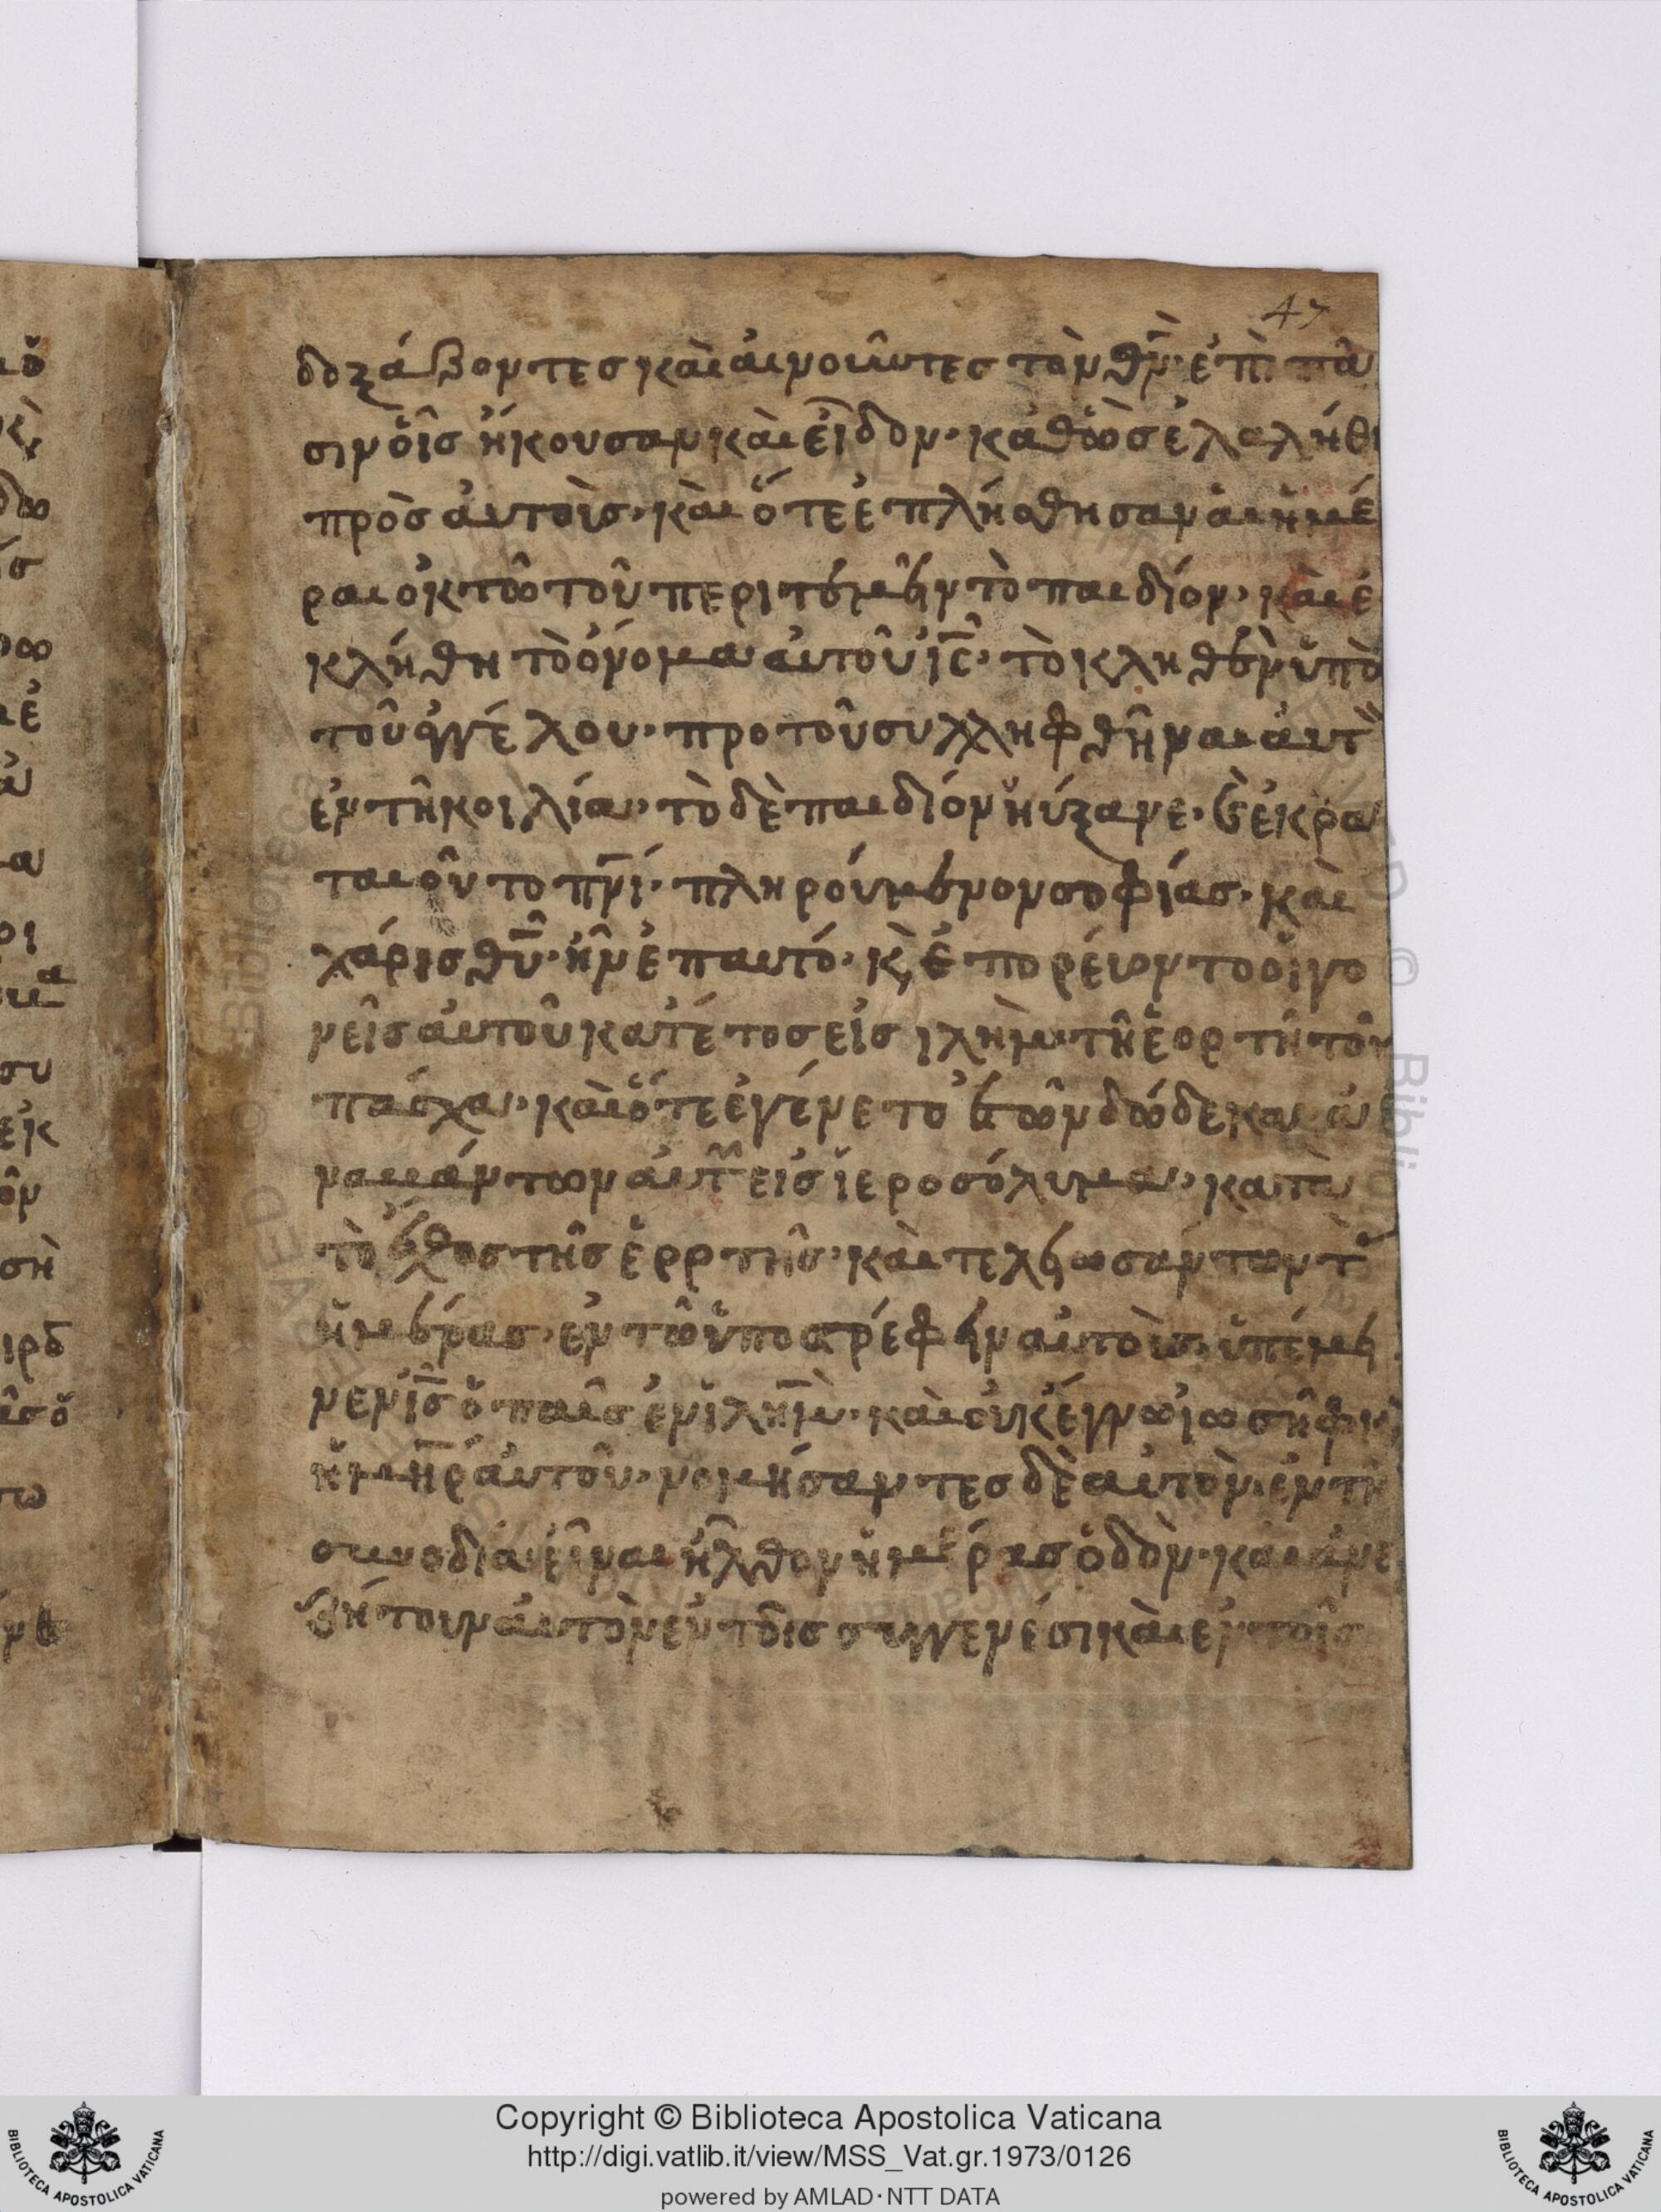 47
δοξάζοντες καὶ αἰνοῦντες τὸν θν̅· ἐπὶ πᾶ
σιν οἷς ἤκουσαν καὶ εἶδον· καθὼς ἐλαλήθη
πρὸς αὐτοὺς· καὶ ὅτε ἐπλήσθησαν αἱ ἡμέ
ραι ὀκτὼ τοῦ περιτεμεῖν τὸ παιδίον· καὶ ἐ
κλήθη τὸ ὄνομα αὐτοῦ ις̅· τὸ κληθὲν ὑπὸ
τοῦ ἀγγέλου· προ τοῦ συλληφθῆναι αὐτ
ἐν τῆ κοιλία· τὸ δὲ παιδίον ηὔξανε· καὶ ἐκρα
ταιοῦντο πνι̅· πληρούμενον σοφίας· καὶ
χάρις θυ̅· ἦν ἐπαυτό· κ̀ ἐπορεύοντο οἱ γο
νεῖς αὐτοῦ κατέτος εἰς ιλημ̅ τῆ ἑορτῆ τοῦ
πάσχα· καὶ ὅτε ἐγένετο ἐτῶν δώδεκα
εἰς ἱεροσόλυμα· κατὰ
τὸ ἔθος τῆς ἑορτῆς· καὶ τελειωσάντων τ
ἡμέρας· ἐν τῶ ὑποστρέφειν αὐτοὺς· ὑπέμει
νεν ις̅ ὁ παῖς ἐν ιλημ̅· καὶ οὐκ ἔγνω ιωσὴφ κ̀
ἡ μηρ̅ αὐτοῦ· νομήσαντες δὲ αὐτὸν ἐν τῆ
συνοδία εἶναι ἦλθον ἡμέρας ὁδὸν· καὶ ἀνε
ζήτουν αὐτὸν ἐν τοῖς συγγενέσι καὶ ἐν τοῖς
Copyright © Biblioteca Apostolica Vaticana
http://digi.vatlib.it/view/MSS_Vat.gr.1973/0126
powered by AMLAD·NTT DATA
BIBLIOTECA APOSTOLICA VATICANA
BIBLIOTECA APOSTOLICA VATICANA